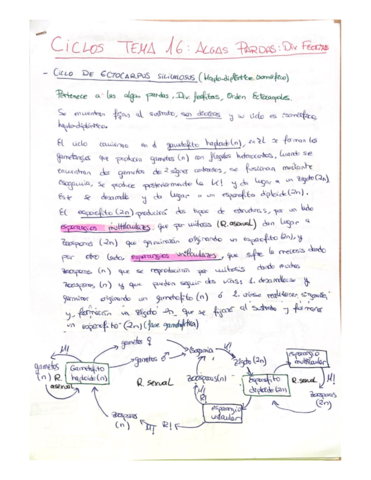 CICLOS TEMA 16: ALGAS PARDAS: DIV. FEOFITAS
- CICLO DE ECTOCARPUS SILICULOSUS (Haplo-diplóntico isomórfico)
Pertenece a: las algas pardas. Div feofitas, Orden Ectocarpales.
Se encuentran fijas al sustrato, son dioicas y su ciclo es isomórfico,
haplo-diplóntico.
El ciclo comienza en el gametofito haploide (n), en el se forman los
gametangios que producen gametos (n) con flagelos heterocontos, cuando se
encuentran dos gametos de 2 signos contrarios, se fusionan mediante
isogamia, se produce posteriormente la K! y da lugar a un zigoto (2n).
Este se desarrolla y da lugar a un esporofito diploide (2n).
El esporofito (2n) producirá dos tipos de estructuras, por un lado
esporangios multiloculares, que por mitosis (R. asexual) dan lugar a
zoosporas (2n) que germinarán originando un esporofito (2n), y
por otro lado esporangios uniloculares, que sufre la meiosis dando
zoosporas (n) que se reproducirán por mitosis dando muchas
zoosporas (n) y que pueden seguir dos vías 1. desarrollarse y
germinar originando un gametofito (n) ó 2. unirse
y formación un zigoto 2n, que se fija al sustrato y formará
un esporofito (2n)
gametos ♀
M!
gametos (n)
R. asexual
Gametofito haploide (n)
gametos ♂
Isogamia
R. sexual
zoosporas (n)
M!
K!
Zigoto (2n)
M!
esporangio multilocular
Esporofito diploide (2n)
R. asexual
zoosporas (2n)
zoosporas (n)
M!
R!
esporangio unilocular